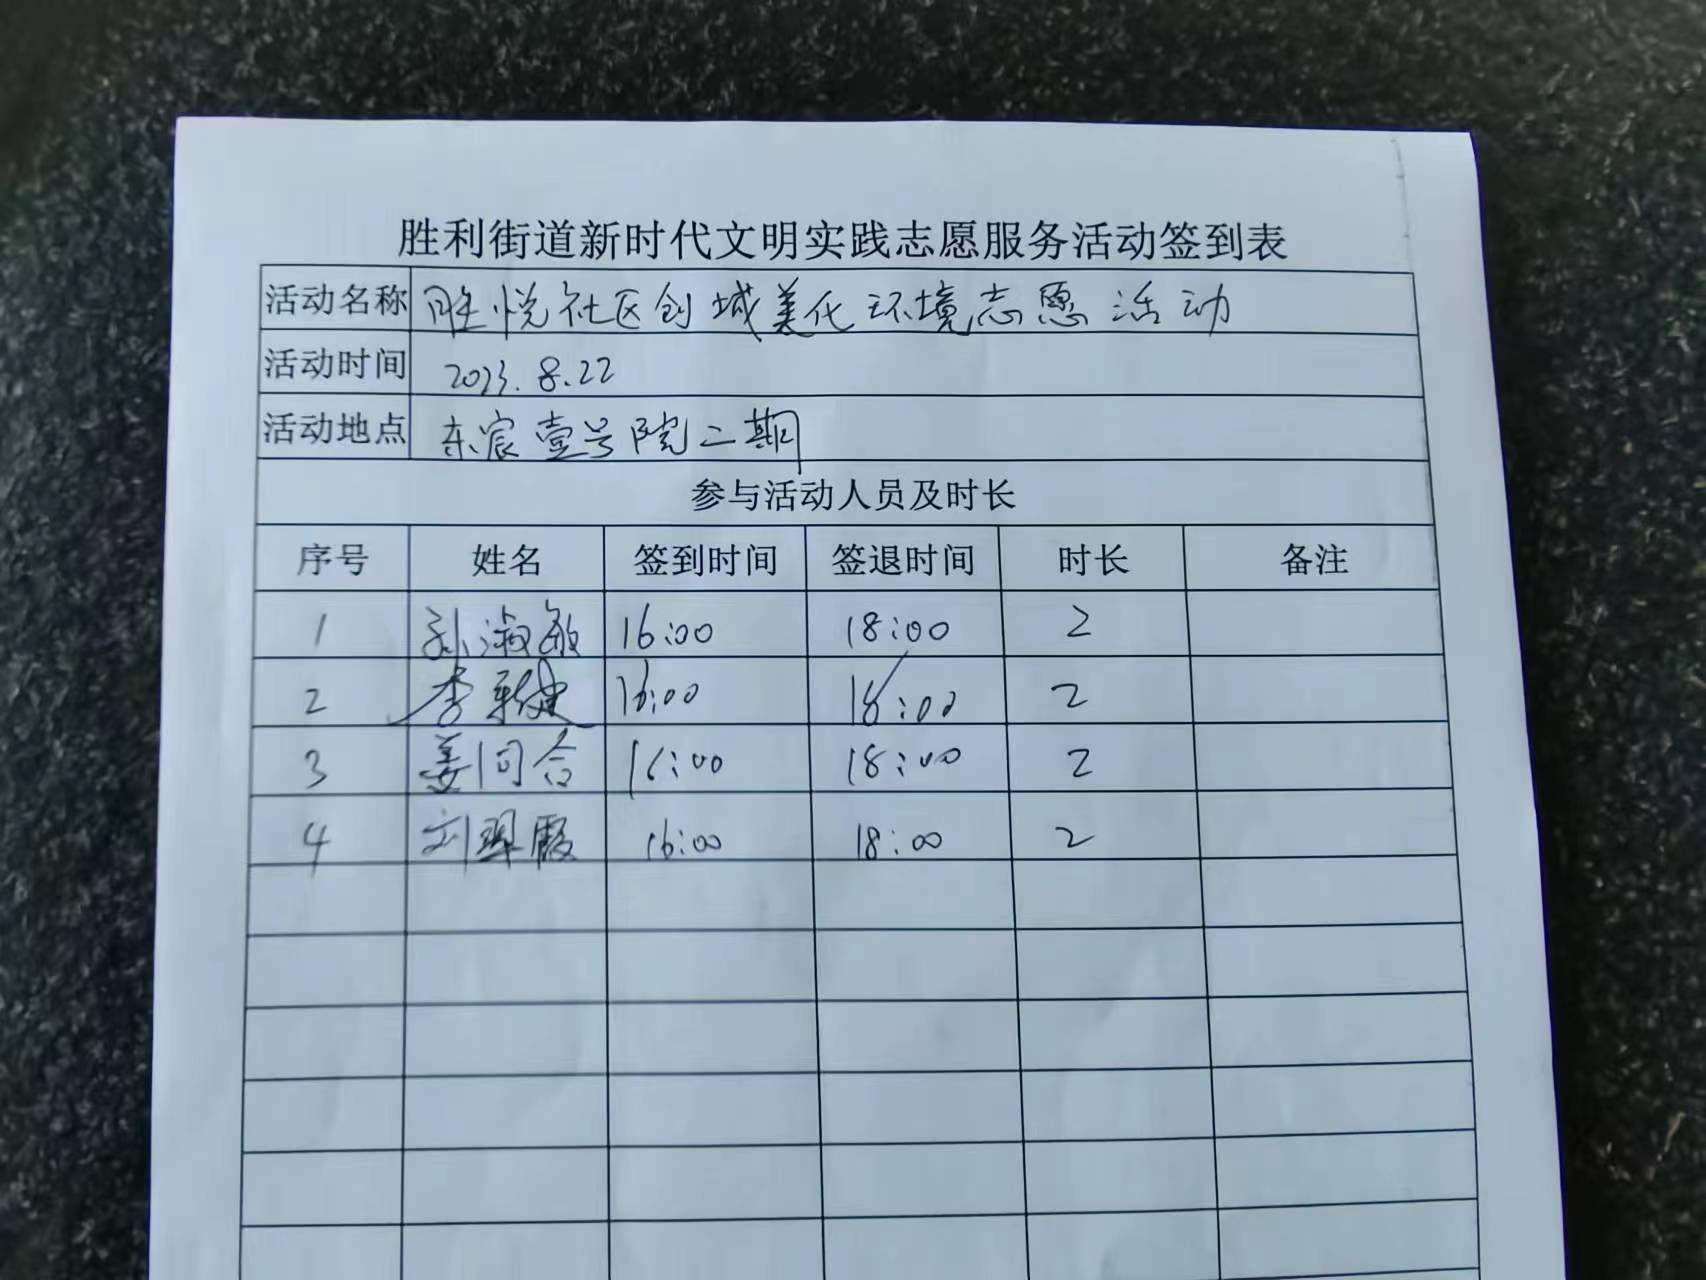 胜利街道新时代文明实践志愿服务活动签到表
活动名称 胜悦社区创城美化环境志愿活动
活动时间 2023.8.22
活动地点 东宸壹号院二期
参与活动人员及时长
序号 姓名 签到时间 签退时间 时长 备注
1 孙淑敏 16:00 18:00 2
2 李 16:00 18:00 2
3 姜同合 16:00 18:00 2
4 刘翠霞 16:00 18:00 2